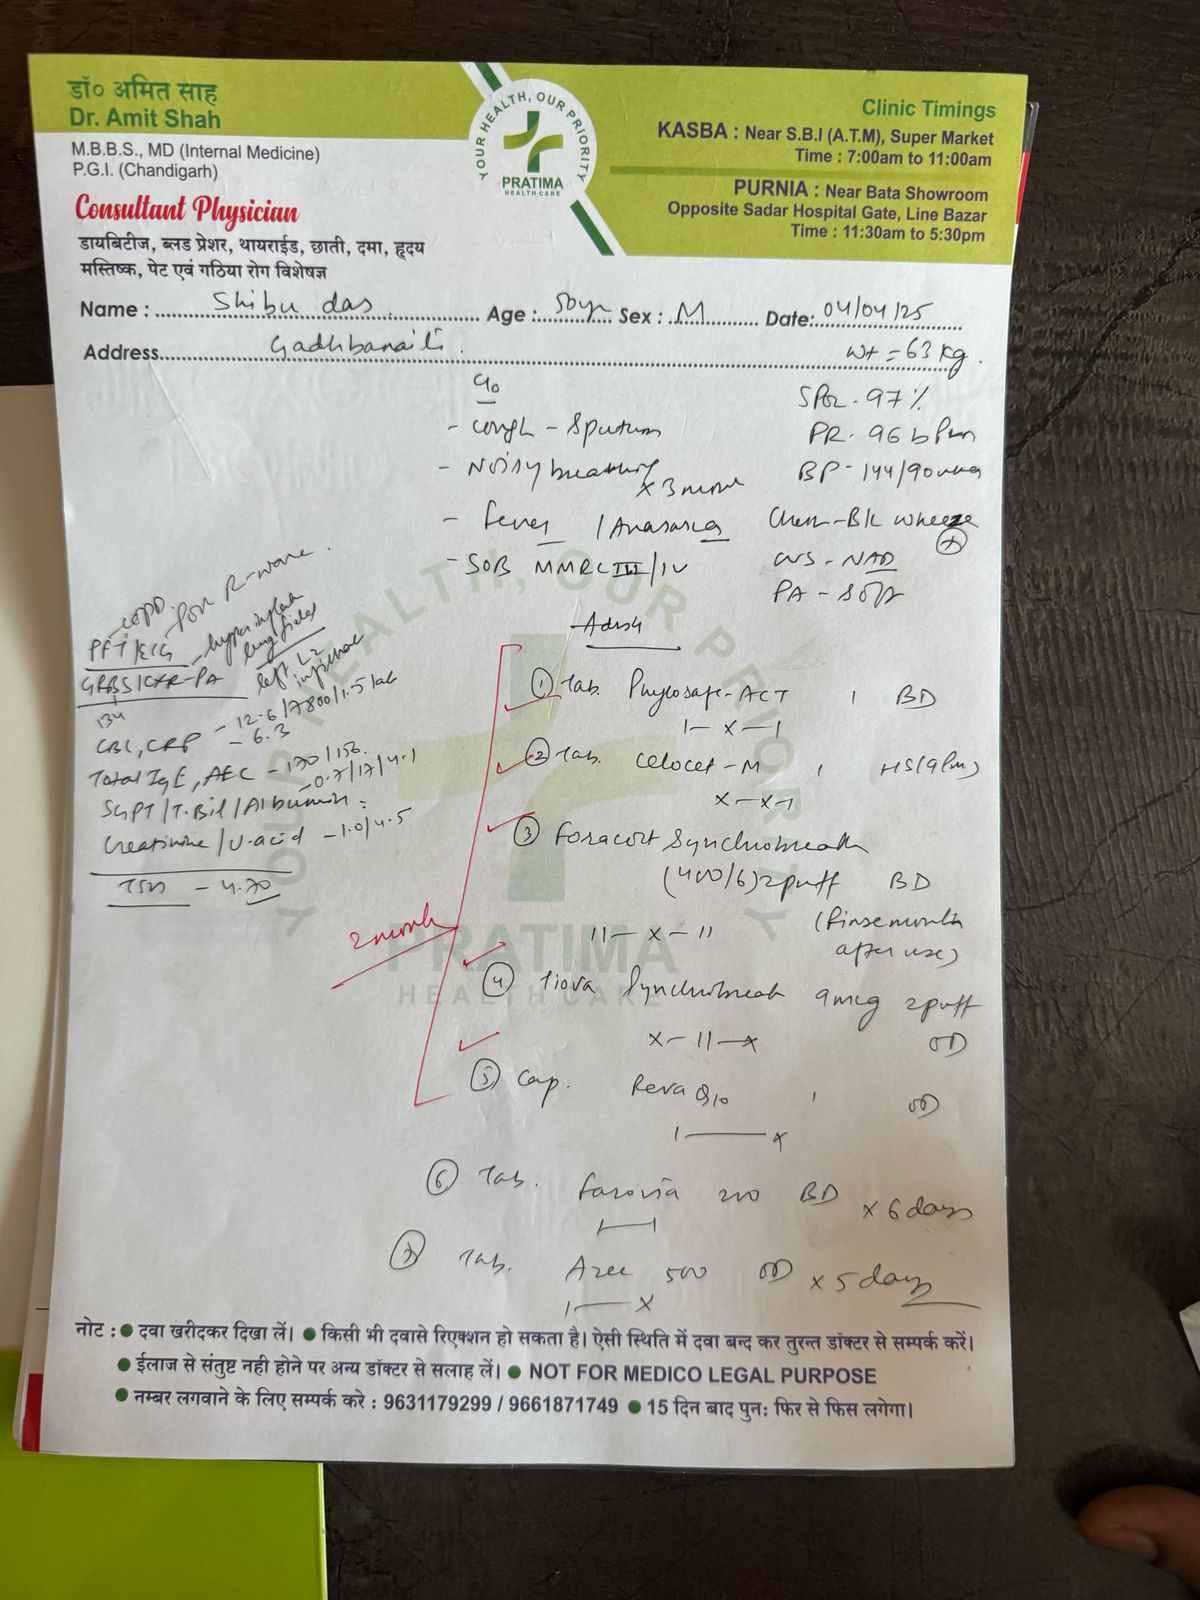 डॉ० अमित साह
Dr. Amit Shah
M.B.B.S., MD (Internal Medicine)
P.G.I. (Chandigarh)
Consultant Physician
डायबिटीज, ब्लड प्रेशर, थायराईड, छाती, दमा, हृदय
मस्तिष्क, पेट एवं गठिया रोग विशेषज्ञ
YOUR HEALTH, OUR PRIORITY
PRATIMA
HEALTH CARE
Clinic Timings
KASBA : Near S.B.I (A.T.M), Super Market
Time : 7:00am to 11:00am
PURNIA : Near Bata Showroom
Opposite Sadar Hospital Gate, Line Bazar
Time : 11:30am to 5:30pm
Name : Shibu das Age : 50yr Sex : M Date: 04/04/25
Address Gadhbanaili
Wt = 63 kg.
c/o
- Cough - Sputum
- Noisy breathing
- Fever / Anasarca
- SOB MMRC III/IV
SPO2 - 97 %
PR - 96 bpm
BP - 144/90
Chest - B/L wheeze +
CVS - NAD
PA - Soft
- COPD.
PFT/ECG - Poor R-wave.
GRBS/CXR-PA - hyperinflated lung fields
134
CBC, CRP - 12.6/7800/1.5
- 6.3
Total IgE, AEC - 170/156.
SGPT/T.Bil/Albumin
Creatinine/U.acid - 1.0/4.5
TSH - 4.70
Advise
① Tab. Phylosafe-ACT 1 BD
1-x-1
② Tab. Celocet-M 1 HS(9Pm)
x-x-1
③ Foracort Synchrobreath
(400/6) 2puff BD
11-x-11 (Rinse mouth
after use)
2 month
④ Tiova Synchrobreath 9mcg 2puff
x-11-x OD
⑤ Cap. Reva Q10 1 OD
1-x
⑥ Tab. Farovia 200 BD x 6 days
⑦ Tab. Azee 500 OD x 5 days
1-x
YOUR HEALTH, OUR PRIORITY
PRATIMA
HEALTH CARE
नोट : ● दवा खरीदकर दिखा लें। ● किसी भी दवासे रिएक्शन हो सकता है। ऐसी स्थिति में दवा बन्द कर तुरन्त डॉक्टर से सम्पर्क करें।
● ईलाज से संतुष्ट नही होने पर अन्य डॉक्टर से सलाह लें। ● NOT FOR MEDICO LEGAL PURPOSE
● नम्बर लगवाने के लिए सम्पर्क करे : 9631179299 / 9661871749 ● 15 दिन बाद पुनः फिर से फिस लगेगा।